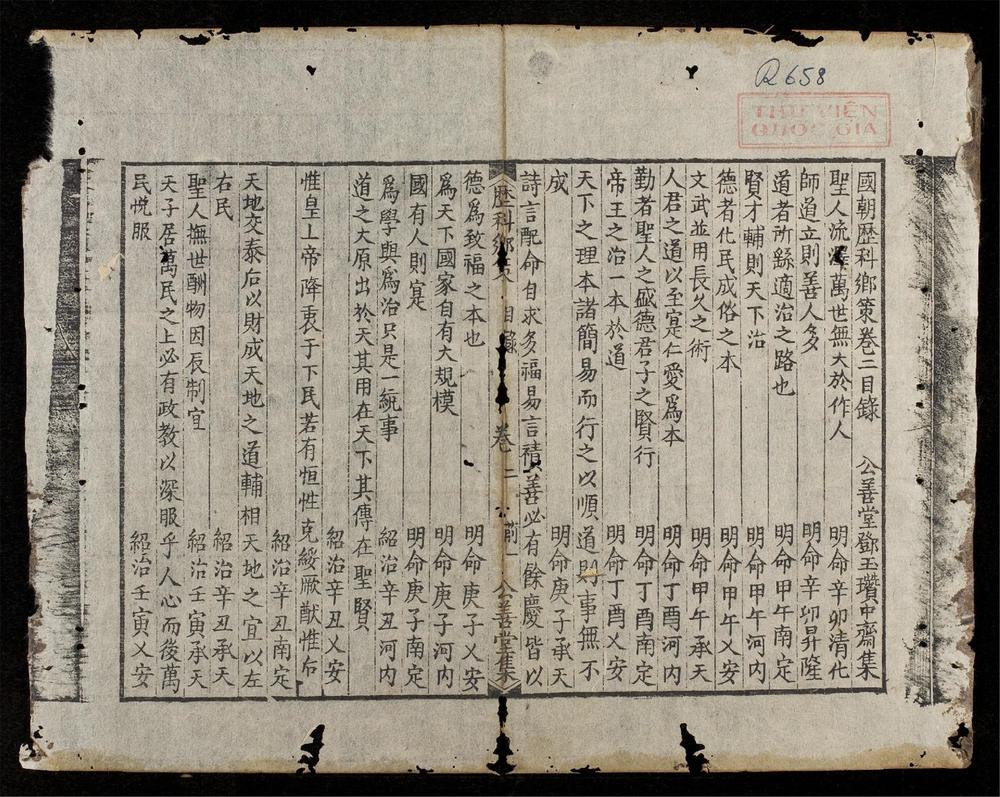 R 658
THƯ VIỆN
QUỐC GIA
國朝歷科鄉策卷三目錄 公善堂鄧玉瓚中齋集
聖人流澤萬世無大於作人 明命辛卯清化
師道立則善人多 明命辛卯昇隆
道者所繇適治之路也 明命甲午南定
賢才輔則天下治 明命甲午河内
德者化民成俗之本 明命甲午乂安
文武並用長久之術 明命甲午承天
人君之道以至寔仁愛爲本 明命丁酉河内
勤者聖人之盛德君子之賢行 明命丁酉南定
帝王之治一本於道 明命丁酉乂安
天下之理本諸簡易而行之以順道則事無不
成 明命庚子承天
詩言配命自求多福易言積善必有餘慶皆以
歷科鄉策 目錄 卷 二 前一 公善堂集
德爲致福之本也 明命庚子乂安
爲天下國家自有大規模 明命庚子河内
國有人則寔 明命庚子南定
爲學與爲治只是一統事 紹治辛丑河内
道之大原出於天其用在天下其傳在聖賢
紹治辛丑乂安
惟皇上帝降衷于下民若有恒性克綏厥猷惟后
紹治辛丑南定
天地交泰后以財成天地之道輔相天地之宜以左
右民 紹治辛丑承天
聖人撫世酬物因辰制宜 紹治壬寅承天
天子居萬民之上必有政教以深服乎人心而後萬
民悅服 紹治壬寅乂安